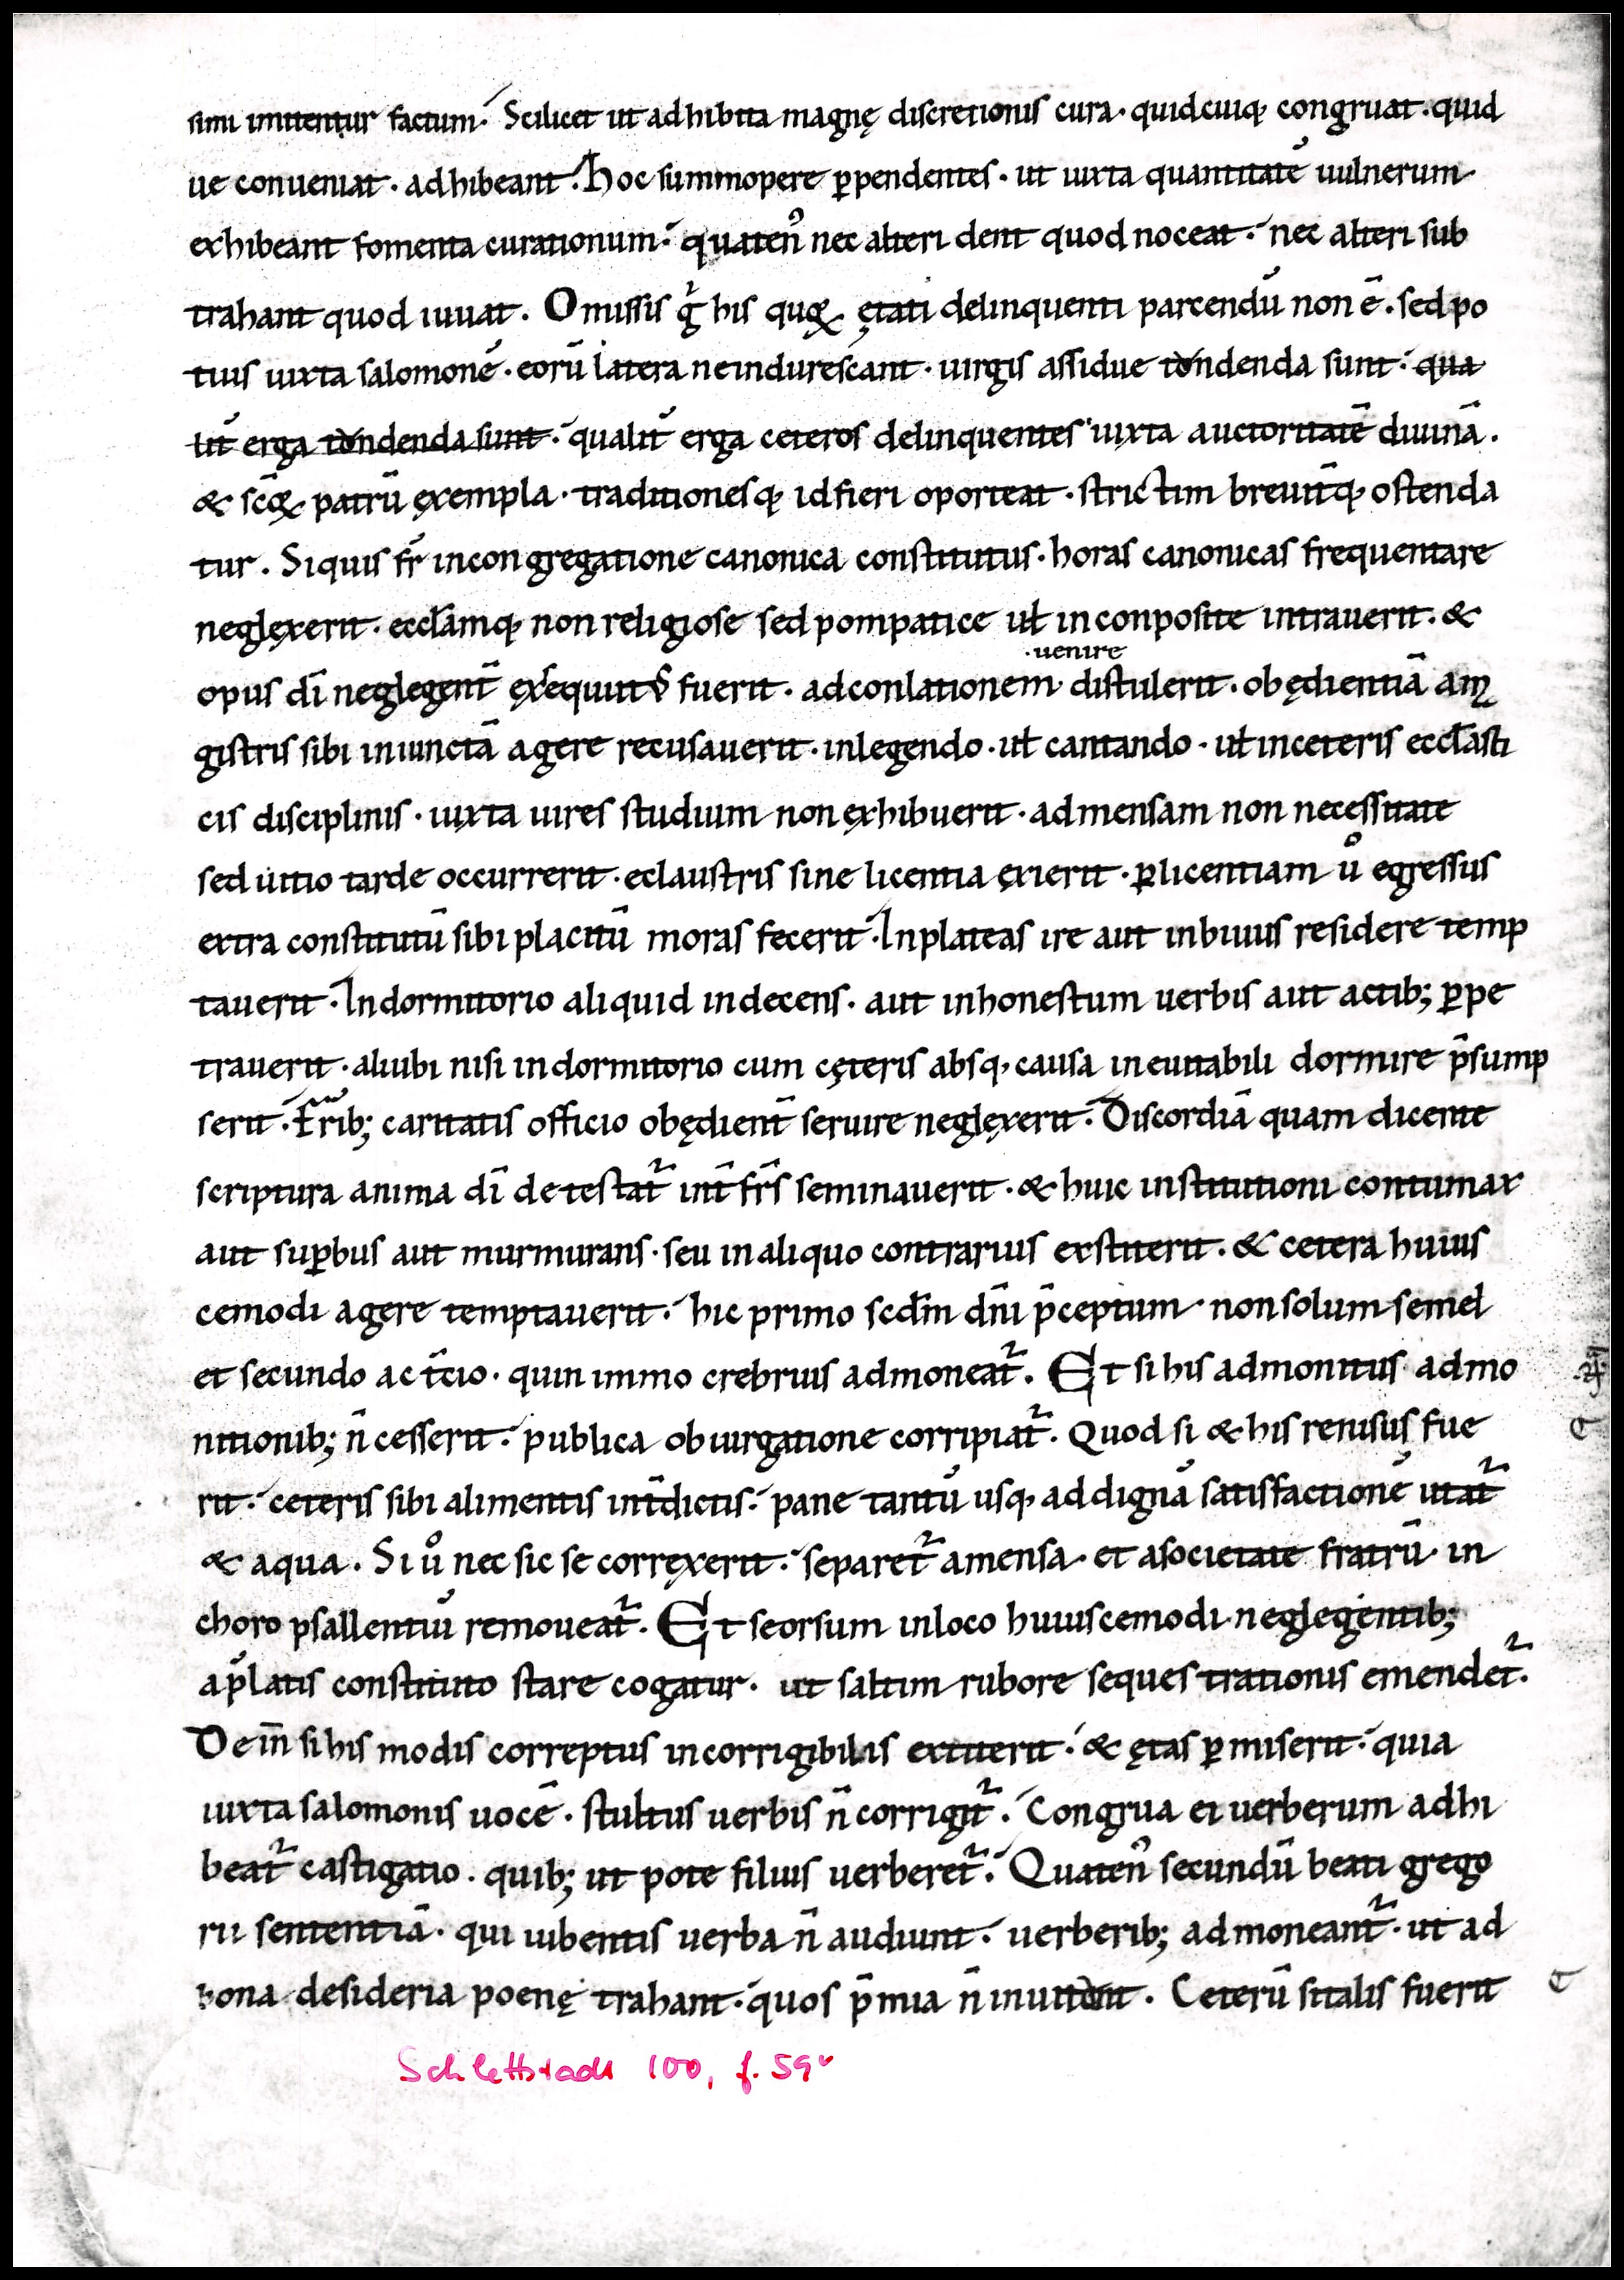 simi imitentur factum· Scilicet ut adhibita magnę discretionis cura· quid cuiq; congruat· quid
ue conueniat· adhibeant· hoc summopere ꝑpendentes· ut iuxta quantitatē uulnerum
exhibeant fomenta curationum· quatenꝰ nec alteri dent quod noceat· nec alteri sub
trahant quod iuuat. Omissis g̛ his quoꝝ ętati delinquenti parcendū non ē· sed po
tius iuxta salomonē· eorū latera ne indurescant· uirgis assidue tondenda sunt· qua
lit̄ erga tondenda sunt· qualit̄ erga ceteros delinquentes iuxta auctoritatē diuinā.
& sc̄oꝝ patrū exempla· traditionesq; id fieri oporteat· strictim breuit̄q; ostenda
tur. Siquis fr̄ in congregatione canonica constitutus· horas canonicas frequentare
neglexerit· eccl̄amq; non religiose sed pompatice ut̵ inconposite intrauerit· &
opus dī neglegent̄ exequutꝰ fuerit· ad conlationem ·uenire distulerit· obędientiā a ma
gistris sibi iniunctā agere recusauerit· in legendo· ut̵ cantando· ut̵ in ceteris eccl̄asti
cis disciplinis· iuxta uires studium non exhibuerit· ad mensam non necessitate
sed uitio tarde occurrerit· e claustris sine licentia exierit· ꝑ licentiam ů egressus
extra constitutū sibi placitū moras fecerit· In plateas ire aut in biuiis residere temp
tauerit· In dormitorio aliquid indecens· aut inhonestum uerbis aut actib; ꝑpe
trauerit· aliubi nisi in dormitorio cum cęteris absq; causa ineuitabili dormire p̄sump
serit· Fr̄ib; caritatis officio obędient̄ seruire neglexerit· Discordiā quam dicente
scriptura anima dī detestat̄ int̄ fr̄s seminauerit· & huic institutioni contumax
aut suꝑbus aut murmurans· seu in aliquo contrarius exstiterit· & cetera huius
cemodi agere temptauerit· hic primo scd̄m dn̄i p̄ceptum· non solum semel
et secundo ac t̄cio· quin immo crebrius admoneat̄. Et si his admonitus admo
nitionib; n̄ cesserit· publica obiurgatione corripiat̄. Quod si & his renisus fue
rit· ceteris sibi alimentis int̄dictis· pane tantū usq; ad dignā satisfactionē utat̄
& aqua. Si ů nec sic se correxerit· separet̄ a mensa· et a societate fratrū· in
choro psallentiū remoueat̄. Et seorsum in loco huiuscemodi neglegentib;
a p̄latis constituto stare cogatur· ut saltim rubore sequestrationis emendet̄.
Dein̄ si his modis correptus incorrigibilis extiterit· & ętas ꝑmiserit· quia
iuxta salomonis uocē· stultus uerbis n̄ corrigit̄· Congrua ei uerberum adhi
beat̄ castigatio· quib; ut pote filius uerberet̄· Quatenꝰ secundū beati grego
rii sententiā· qui iubentis uerba n̄ audiunt· uerberib; admoneant̄· ut ad
bona desideria poenę trahant· quos p̄mia n̄ inuitant. Ceterū si talis fuerit
Schlettstadt 100, f. 59v